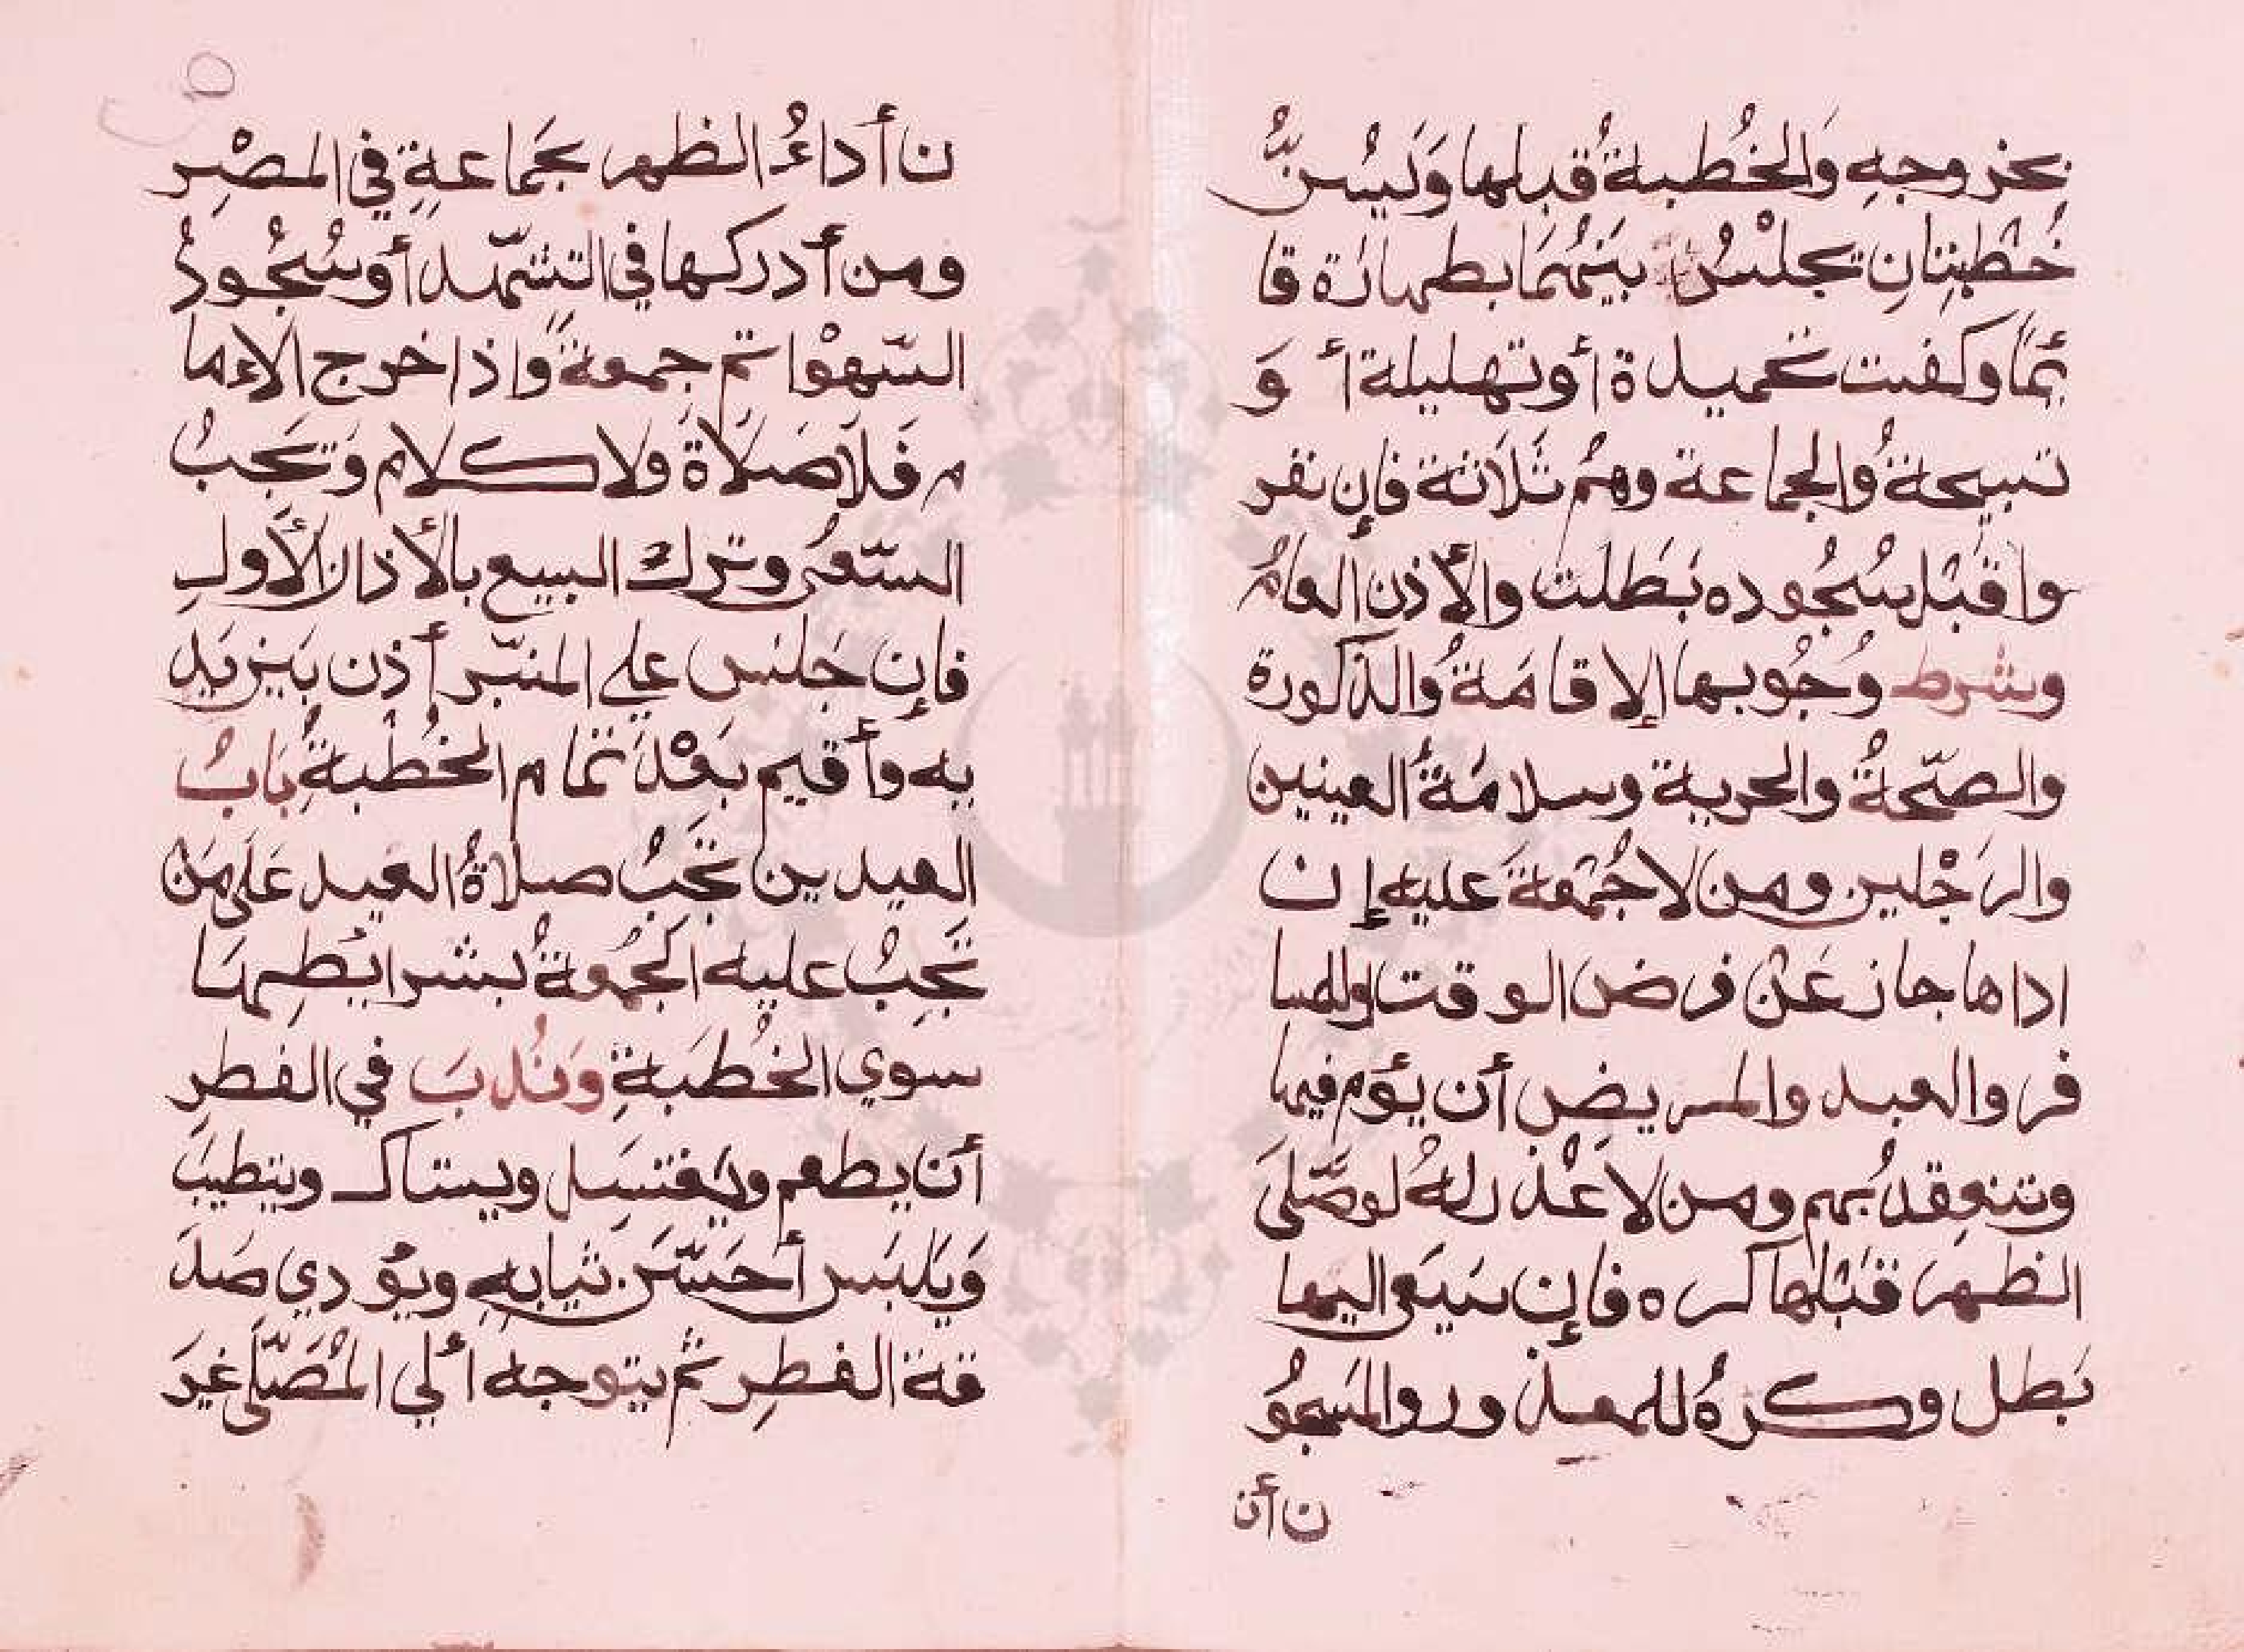 بخروجهِ وَالخُطبةُ قُبلها وَيُسنُّ
خُطْبتَانِ تجلْسُ بيَنهُمَا بطهارَة قا
ئمًا وكفت تحميدة أو تهليلة أ وَ
تسبيحةُ والجماعة وهُم ثَلَاثة فإن نفر
وا قبْل سُجُوده بَطَلت والأذن العامُ
وشرط وُجُوبها الإقامَةُ والذكورة
والصّحةُ والحرية وسلامَةُ العينين
والرَجْلين ومن لا جُمْعَةَ عليه إن
اداها جاز عَنْ فرض الوقت وللمسا
فر والعبد والمريض أن يؤم فيها
وتنعقِدُ بهم ومن لا عُذْر لهُ لو صَّلىَ
الظهرَ قبْلها كره فإن سَعَى اليها
بَطل وكرهُ للمعذ ور والمَسجُو
ن أن
ن أداءُ الظهر بجَماعةِ في المصْرِ
ومن أدركها في التشهّد أو سُجُودُ
السّهوْ اتم جمعةً واذا خرج الاءما
م فَلَا صَلَاةَ ولا كلام وَتجَبُ
السّعىُ وترك البيع بالأذان الأولِ
فإن جَلسَ على المنبّر أذن بَين يَد
يه وأقيم بَعْدَ تمام الخُطْبةِ بَابُ
العيدين تجَبُ صلاةُ العيد عَلَى مَنْ
تَجِبُ عليه الجُمُعةُ بشرايُطِهَا
سوي الخُطبَةِ وَنُدبَ في الفطرِ
أن يطعم ويغتسِل ويستاك ويتطيبَ
وَيَلبَس أحَسَّنَ ثيابهِ ويؤدي صَدَ
قة الفطرِ ثُم يتوجه ألي المُصَلّى غيرَ